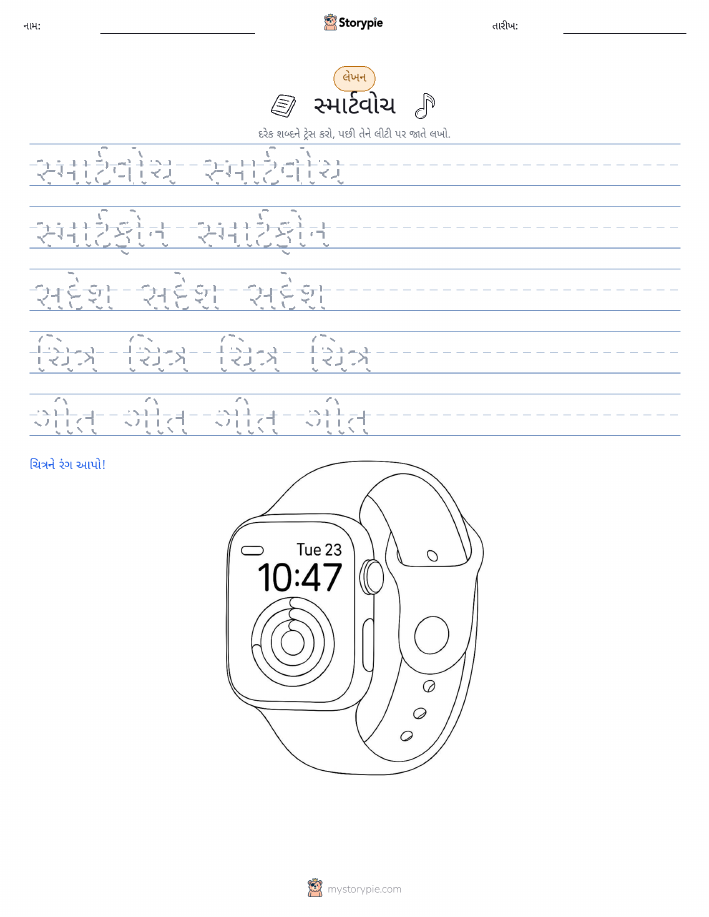 નામ:
Storypie
તારીખ:
લેખન
સ્માર્ટવોચ
દરેક શબ્દને ટ્રેસ કરો, પછી તેને લીટી પર જાતે લખો.
સ્માર્ટવોચ સ્માર્ટવોચ
સ્માર્ટફોન સ્માર્ટફોન
સદેશ સદેશ સદેશ
ચિત્ર ચિત્ર ચિત્ર ચિત્ર
ગીત ગીત ગીત ગીત
ચિત્રને રંગ આપો!
Tue 23
10:47
mystorypie.com